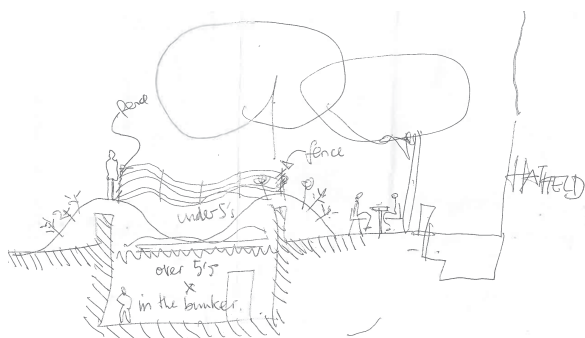 fence
fence
HATFIELD
under 5's
over 5's
x
in the bunker.